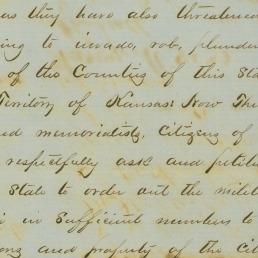 as they have also threatened
ing to invade, rob, plunder
of the Counties of this Sta
Territory of Kansas: Now The
ed memorialists, Citizens of
respectfully ask and petit
State to order out the milit
in Sufficient numbers to
ons and property of the Cit